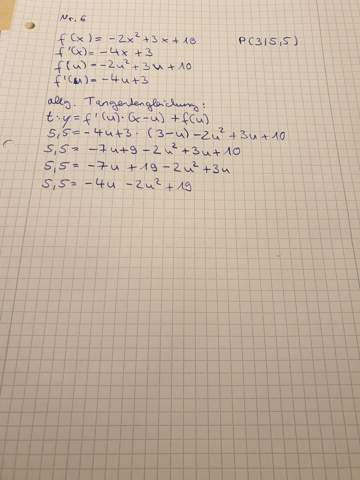 Nr. 6
f(x) = -2x² + 3x + 10 P(3|5,5)
f'(x) = -4x + 3
f(u) = -2u² + 3u + 10
f'(u) = -4u + 3
allg. Tangentengleichung:
t: y = f'(u) · (x-u) + f(u)
5,5 = -4u+3 · (3-u) -2u² + 3u + 10
5,5 = -7u+9 -2u² + 3u + 10
5,5 = -7u + 19 -2u² + 3u
5,5 = -4u -2u² + 19